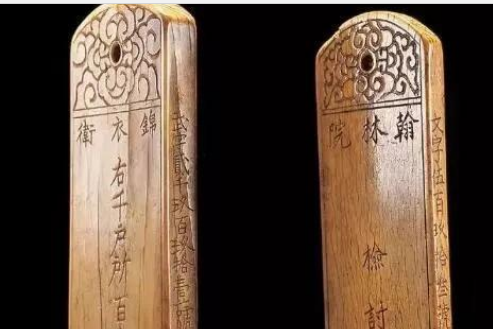 錦衣衛
右千戶所百
武字貳千玖百玖拾壹號
翰林院
檢討
文字伍百玖拾叁號